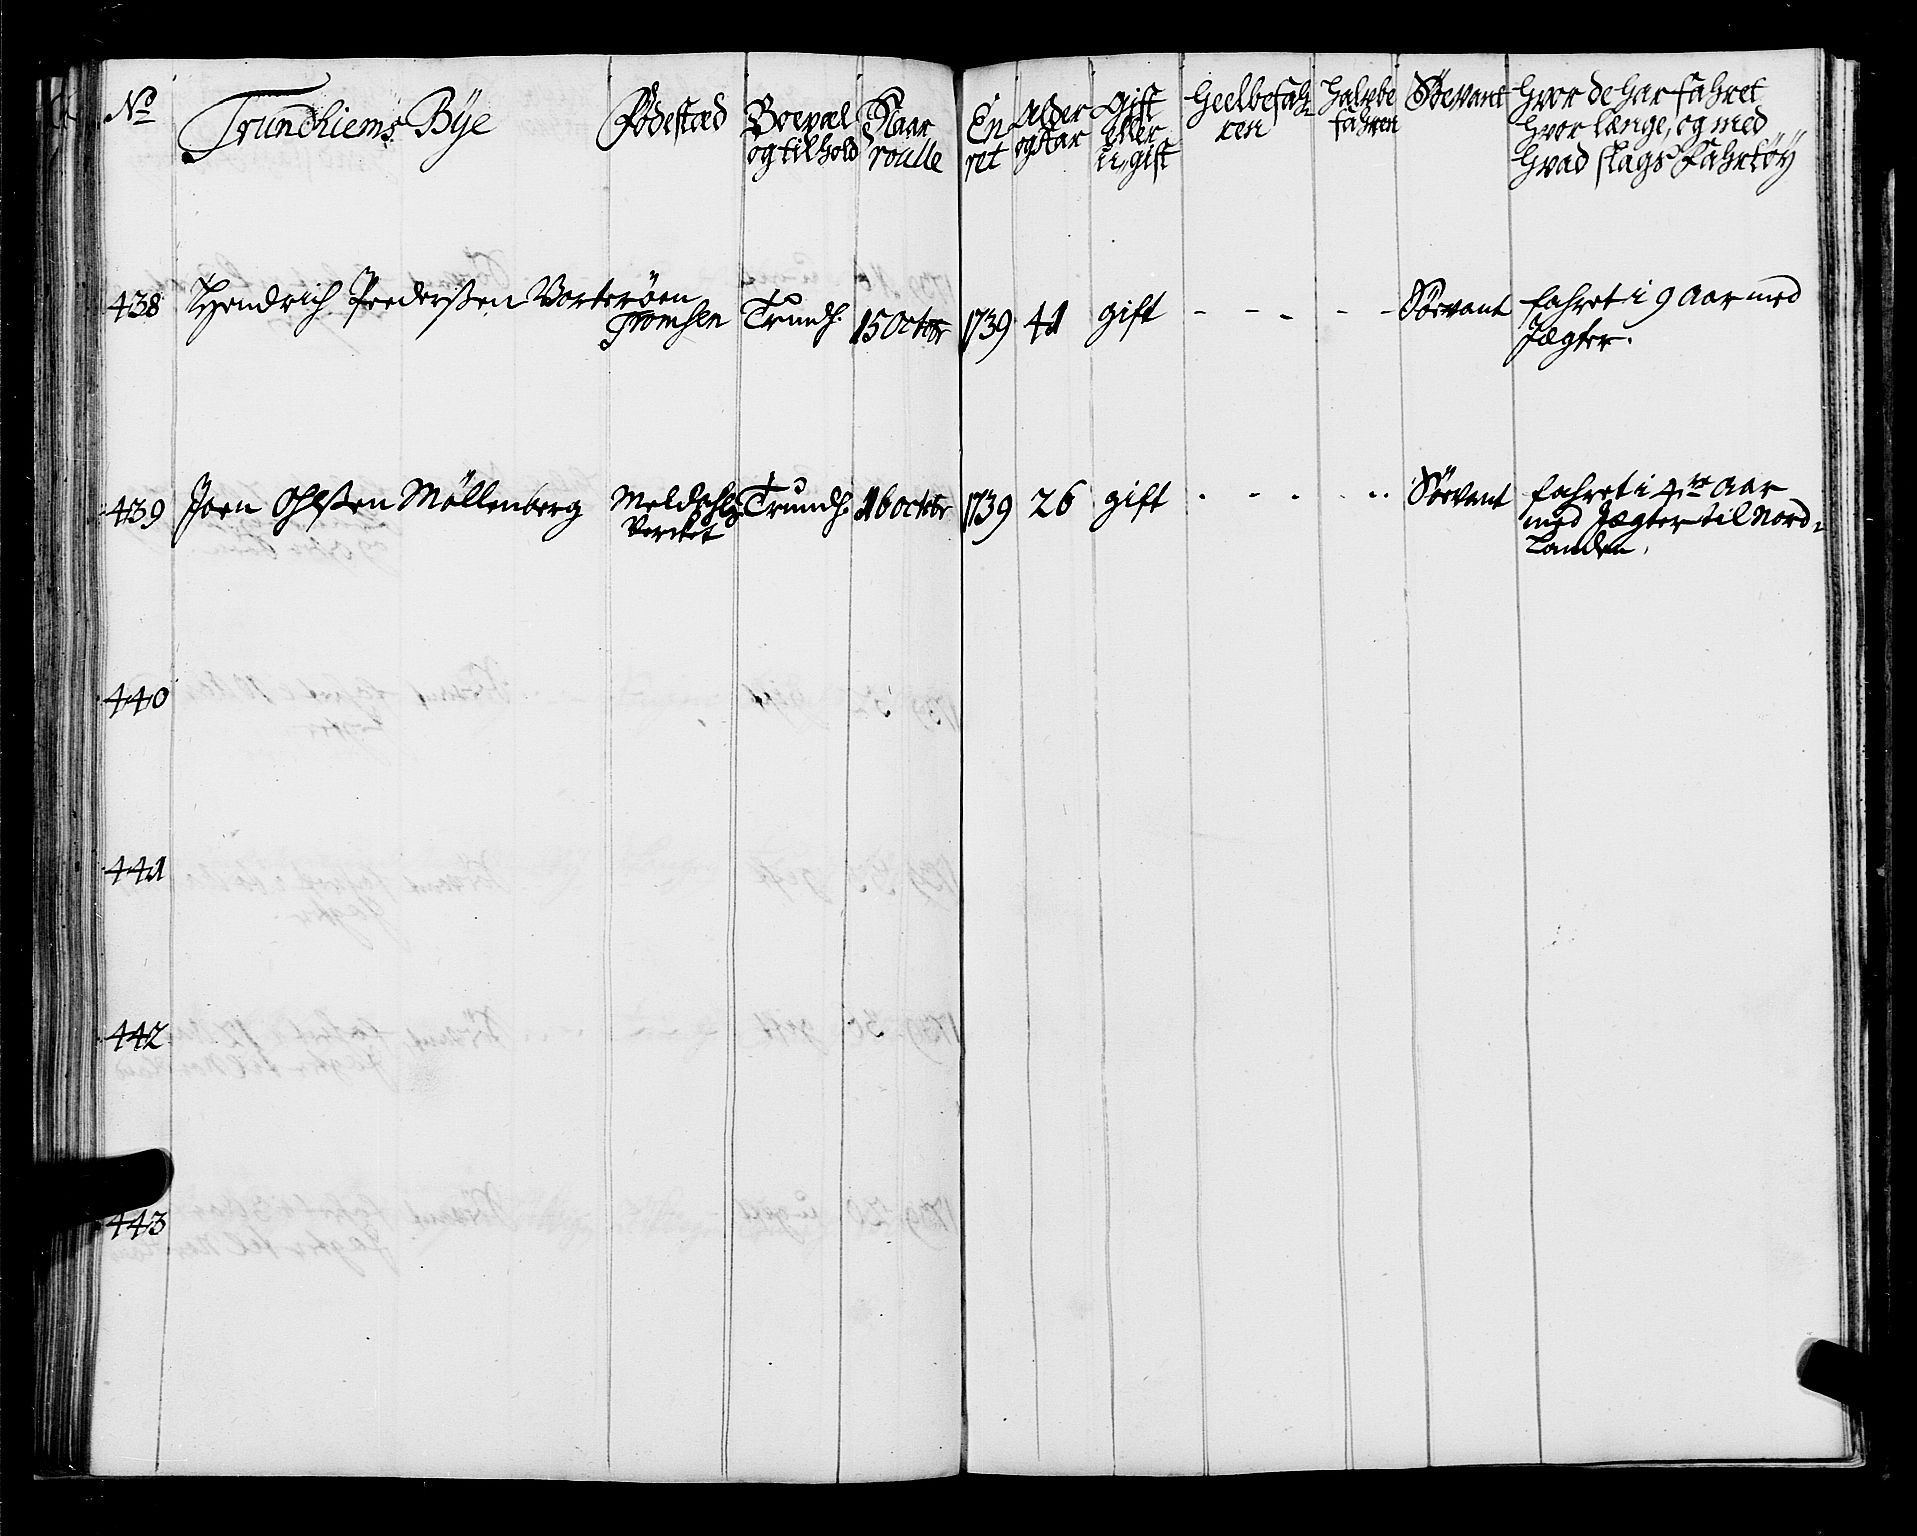 No Trundhiems Bÿe Födestæd Boepæl og tilhold Naar roulle En ret Alder og Aar Gift eller u,gift Heelbefahren halvbefahren Söevant hvor de har fahret
hvor længe, og med
hvad slags Fahrtöÿ
438 Hendrich Peedersßen Vorteröen Tromsen Trundh. 15 Octobr 1739 41 gift - - - - - Söevant fahret i 9 Aar med
Jægter.
439 Joen Ohlsßen Möllenberg Meldahls Trundh. 16 octobr 1739 26 gift - - - - - Söevant fahret i 4re Aar
Vercket med Jægter til Nord=
Landen.
440
441
442
443